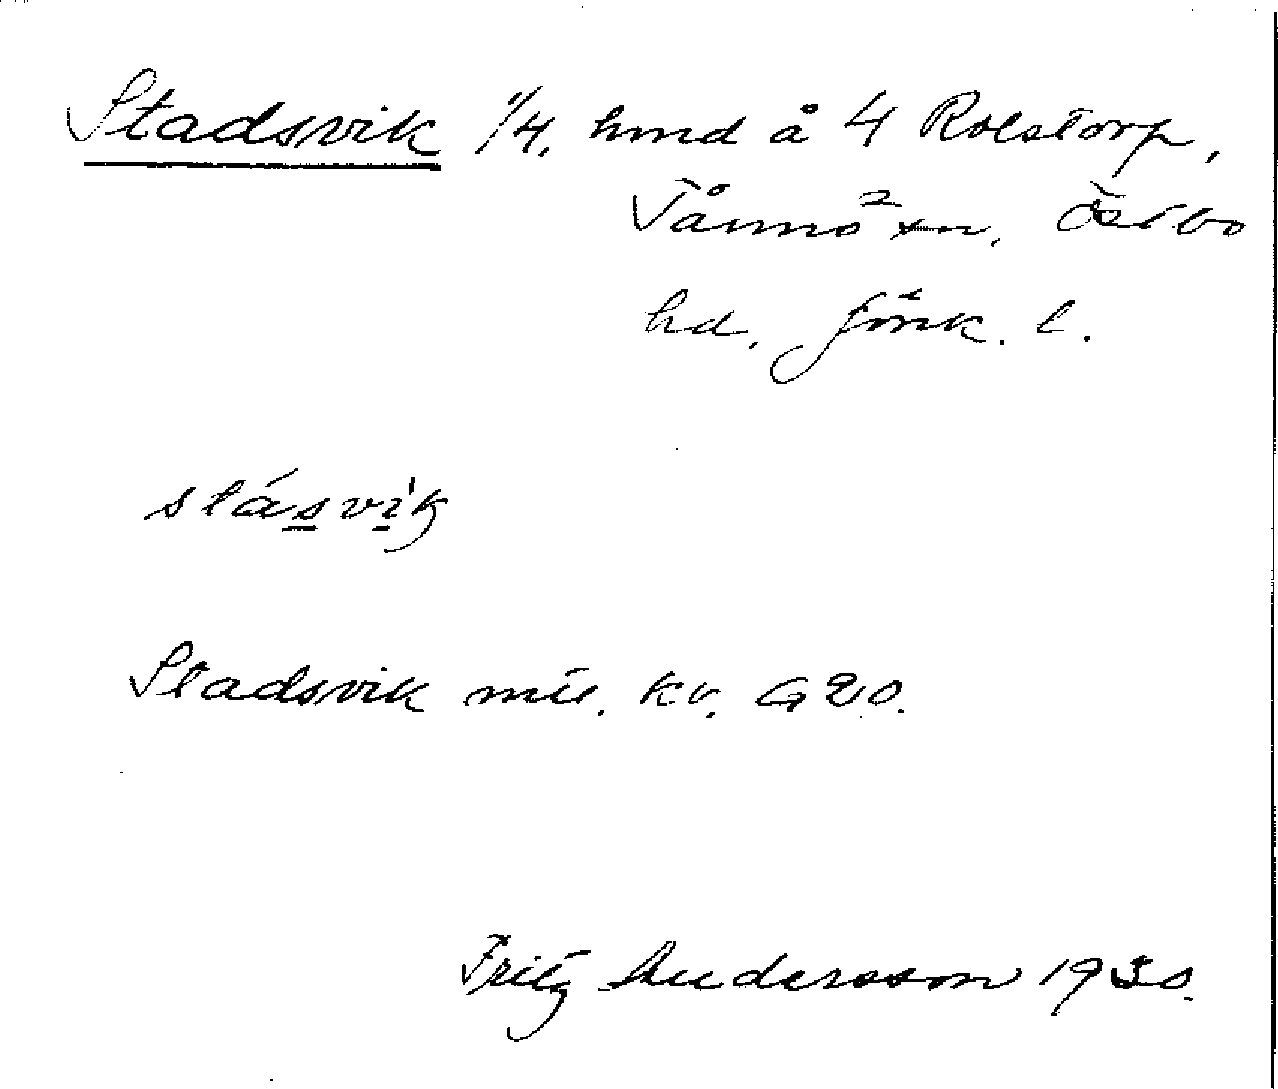 Stadsvik 1/4, hmd å 4 Rolstorp,
Tånnö sn, Östbo
hd, Jönk. l.
stásvìk
Stadsvik mil. kv. G 20.
Fritz Andersson 1930.